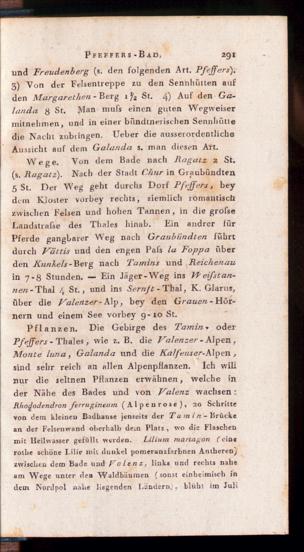 Pfeffers-Bad. 291
und Freudenberg (s. den folgenden Art. Pfeffers).
3) Von der Felsentreppe zu den Sennhütten auf
den Margarethen-Berg 1 1/2 St. 4) Auf den Ga-
landa 8 St. Man muſs einen guten Wegweiser
mitnehmen, und in einer bündtnerischen Sennhütte
die Nacht zubringen. Ueber die ausserordentliche
Aussicht auf dem Galanda s. man diesen Art.
Wege. Von dem Bade nach Ragatz 2 St.
(s. Ragatz). Nach der Stadt Chur in Graubündten
5 St. Der Weg geht durchs Dorf Pfeffers, bey
dem Kloster vorbey rechts, siemlich romantisch
zwischen Felsen und hohen Tannen, in die groſse
Landstraſse des Thales hinab. Ein andrer für
Pferde gangbarer Weg nach Graubündten führt
durch Vättis und den engen Paſs la Foppa über
den Kunkels-Berg nach Tamins und Reichenau
in 7-8 Stunden. — Ein Jäger-Weg ins Weiſstan-
nen-Thal 4 St., und ins Sernft-Thal, K. Glarus,
über die Valenzer-Alp, bey den Grauen-Hör-
nern und einem See vorbey 9-10 St.
Pflanzen. Die Gebirge des Tamin- oder
Pfeffers-Thales, wie z. B. die Valenzer-Alpen,
Monte luna, Galanda und die Kalfeuser-Alpen,
sind sehr reich an allen Alpenpflanzen. Ich will
nur die seltnen Pflanzen erwähnen, welche in
der Nähe des Bades und von Valenz wachsen:
Rhododendron ferrugineum (Alpenrose), 20 Schritte
von dem kleinen Badhause jenseits der Tamin-Brücke
an der Felsenwand oberhalb dem Platz, wo die Flaschen
mit Heilwasser gefüllt werden. Lilium martagon (eine
rothe schöne Lilie mit dunkel pomeranzfarbnen Antheren)
zwischen dem Bade und Valenz, links und rechts nahe
am Wege unter den Waldbäumen (sonst einheimisch in
dem Nordpol nahe liegenden Ländern), blüht im Juli